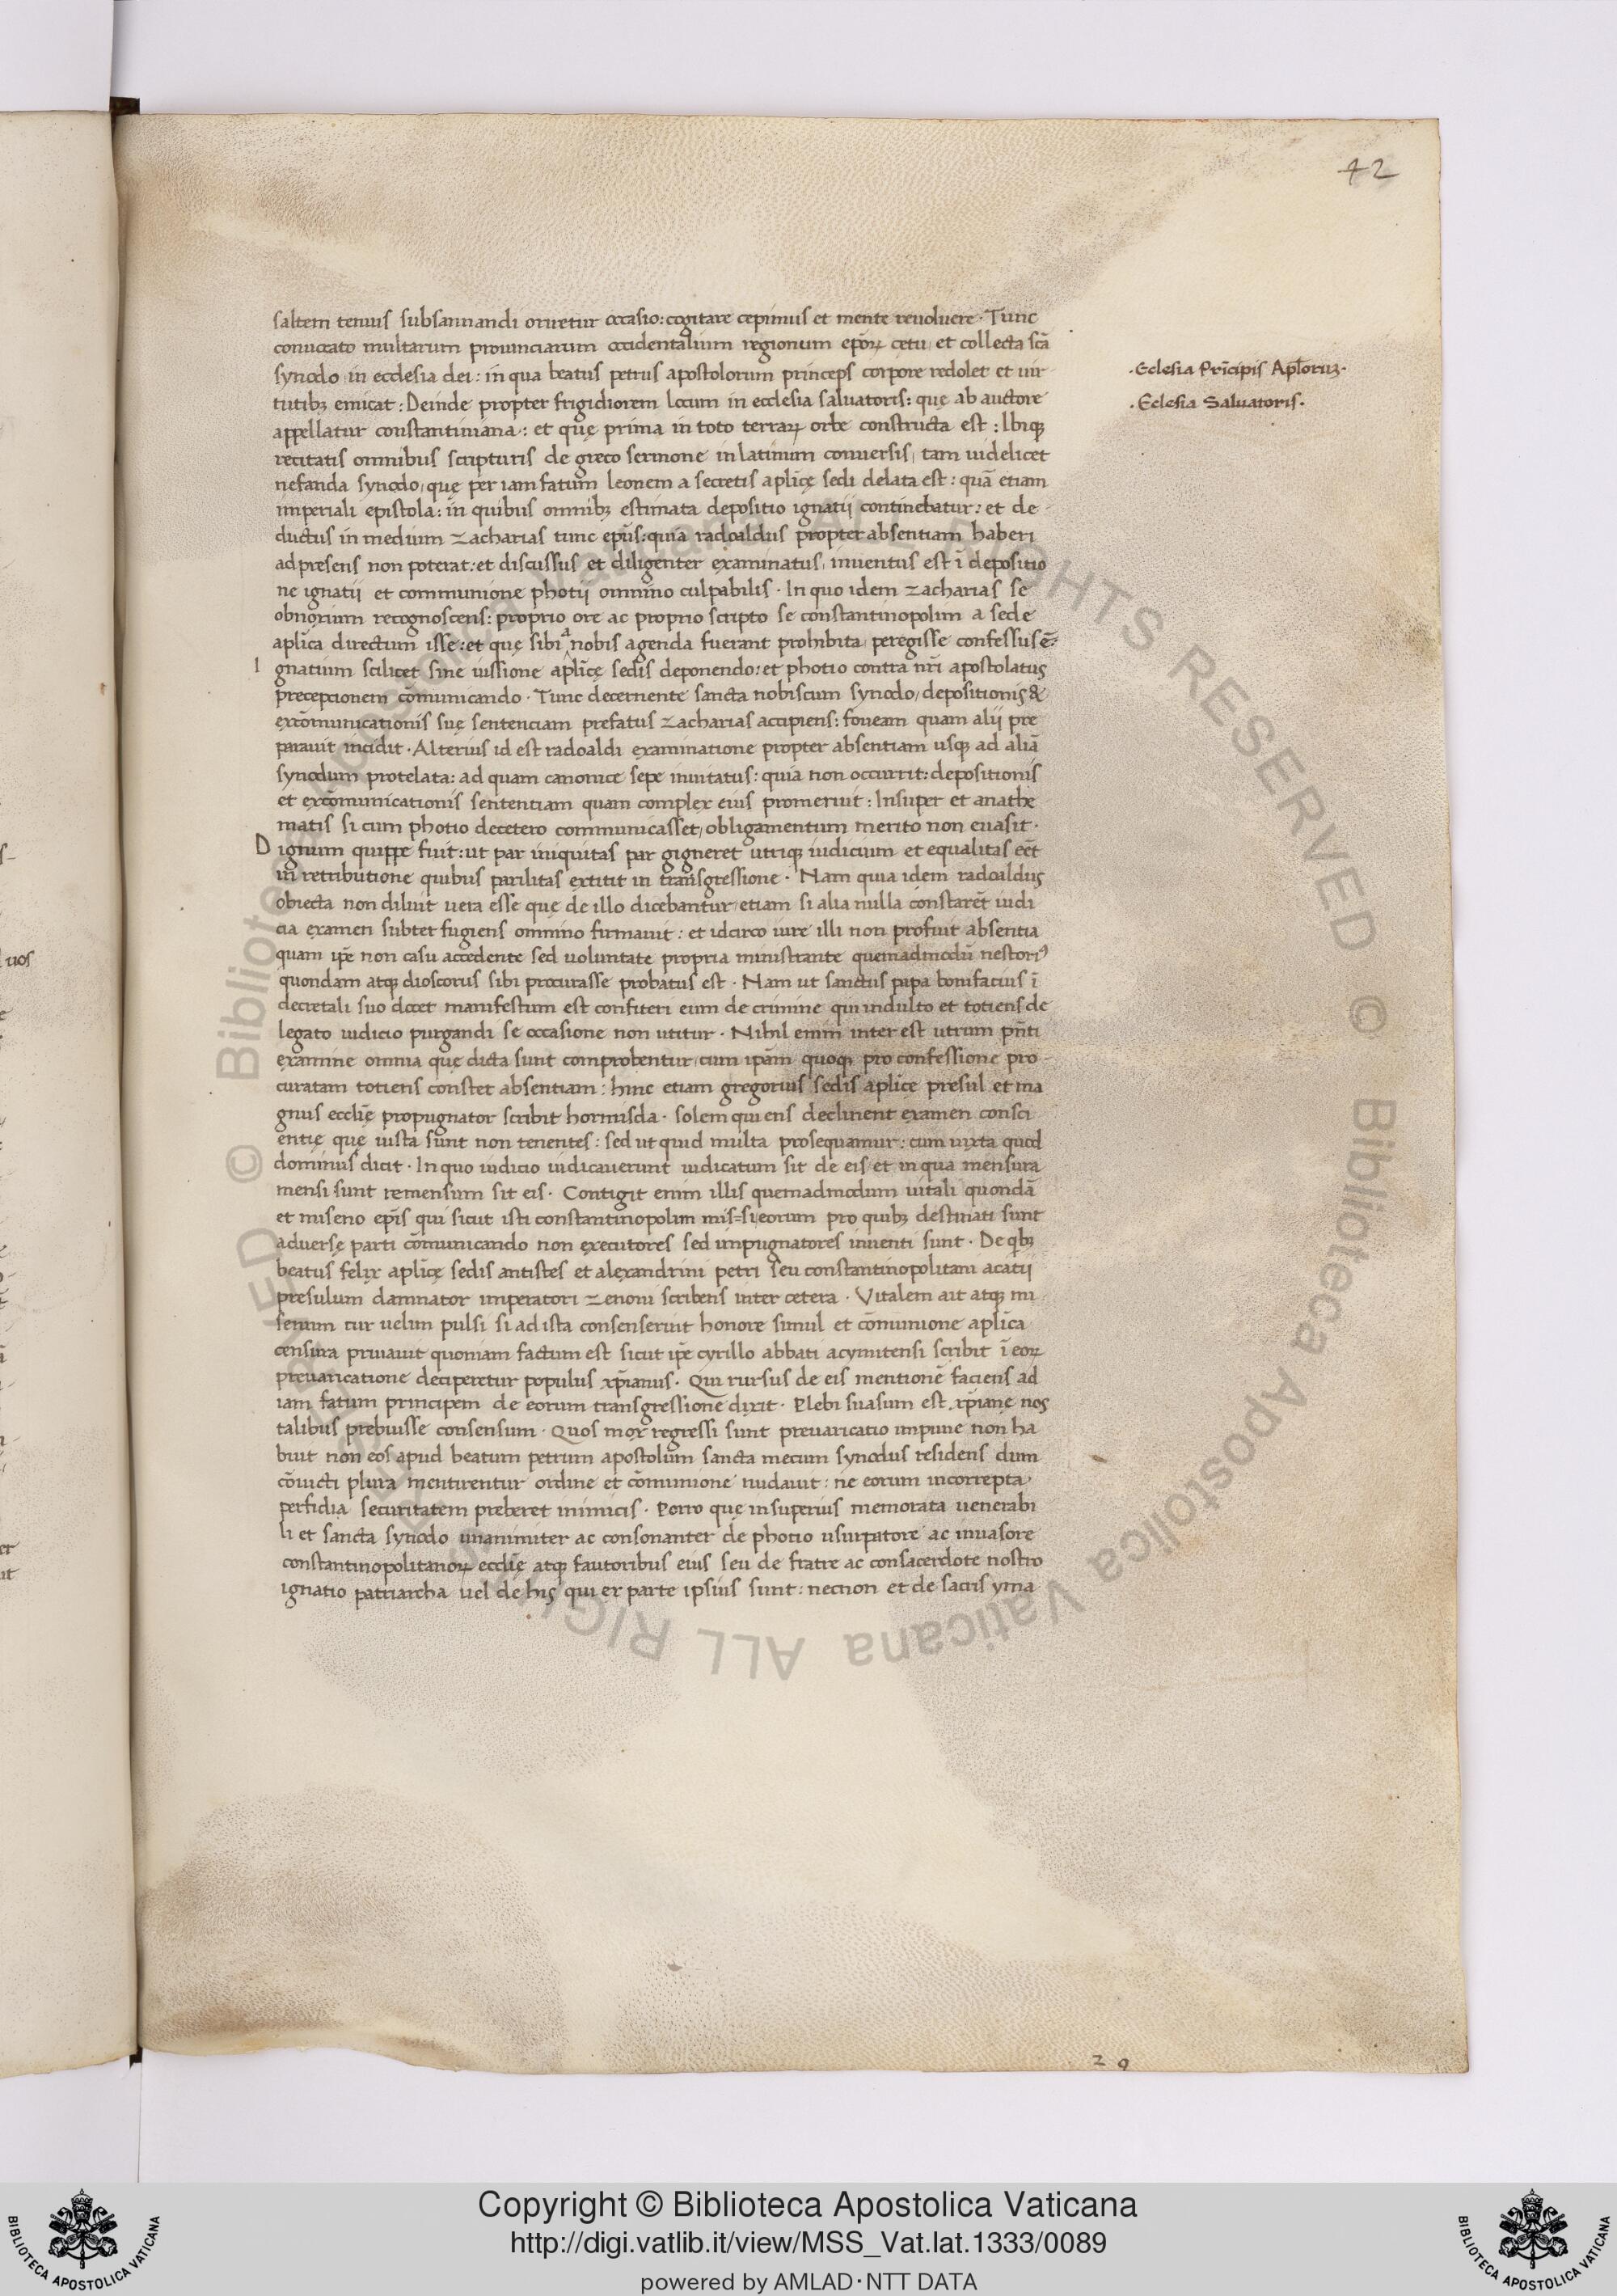 42
saltem tenuis subsannandi oriretur occasio: cogitare cepimus et mente reuoluere. Tunc
conuocato multarum prouinciarum occidentalium regionum ep̄oꝝ cetu, et collecta sc̄a
synodo, in ecclesia dei: in qua beatus petrus apostolorum princeps corpore redolet et uir
tutibꝫ emicat: Deinde propter frigidiorem locum in ecclesia saluatoris: quę ab auctore
appellatur constantiniana: et quę prima in toto terraꝝ orbe constructa est: Ibiqꝫ
recitatis omnibus scripturis de greco sermone in latinum conuersis, tam uidelicet
nefanda synodo, quę per iam fatum leonem a secretis apl̄icę sedi delata est: quā etiam
imperiali epistola: in quibus omnibꝫ estimata depositio ignatii continebatur: et de
ductus in medium zacharias tunc ep̄us: quia radoaldus propter absentiam haberi
ad presens non poterat: et discussus et diligenter examinatus, inuentus est ī depositio
ne ignatii et communione photii omnino culpabilis. In quo idem zacharias se
obnoxium recognoscens: proprio ore ac proprio scripto se constantinopolim a sede
apl̄ica directum isse: et quę sibi a nobis agenda fuerant prohibita, peregisse confessus ē:
I gnatium scilicet sine iussione apl̄icę sedis deponendo: et photio contra nr̄i apostolatus
precepcionem cōmunicando. Tunc decernente sancta nobiscum synodo, depositionis &
excōmunicationis suę sentenciam prefatus zacharias accipiens: foueam quam alii pre
parauit incidit. Alterius id est radoaldi examinatione propter absentiam usqꝫ ad aliā
synodum protelata: ad quam canonice sepe inuitatus: quia non occurrit: depositionis
et excōmunicationis sententiam quam complex eius promeruit: Insuper et anathe
matis si cum photio decetero communicasset, obligamentum merito non euasit.
D ignum quippe fuit: ut par iniquitas par gigneret utriqꝫ iudicium et equalitas eēt
in retributione quibus parilitas extitit in transgressione. Nam quia idem radoaldus
obiecta non diluit uera esse que de illo dicebantur, etiam si alia nulla constarēt iudi
cia examen subterfugiens omnino firmauit: et idcirco iure illi non profuit absentia
quam ip̄e non casu accedente sed uoluntate propria ministrante quemadmodū nestoriꝰ
quondam atqꝫ dioscorus sibi procurasse probatus est. Nam ut sanctus papa bonifacius ī
decretali suo docet manifestum est confiteri eum de crimine qui indulto et totiens de
legato iudicio purgandi se occasione non utitur. Nihil enim inter est utrum pn̄ti
examine omnia quę dicta sunt comprobentur, cum ip̄am quoqꝫ pro confessione pro
curatam totiens constet absentiam: hinc etiam gregorius sedis apl̄ice presul et ma
gnus eccl̄ię propugnator scribit hormisda. solem qui ens declinent examen consci
entię quę iusta sunt non tenentes: sed ut quid multa prosequamur: cum iuxta quod
dominus dicit. In quo iudicio iudicauerunt iudicatum sit de eis, et in qua mensura
mensi sunt remensum sit eis. Contigit enim illis quemadmodum uitali quondā
et miseno ep̄is qui sicut isti constantinopolim mis=si eorum pro quibꝫ destinati sunt
aduersę parti cōmunicando non executores sed impugnatores inuenti sunt. De qͥbꝫ
beatus felix apl̄icę sedis antistes et alexandrini petri seu constantinopolitani acatii
presulum damnator imperatori zenoni scribens inter cetera. Vitalem ait atqꝫ mi
senum cur uelim pulsi si ad ista consenserint honore simul et cōmunione apl̄ica
censura priuauit quoniam factum est sicut ip̄e cyrillo abbati acymitensi scribit ī eoꝝ
preuaricatione deciperetur populus xp̄ianus. Qui rursus de eis mentionē faciens ad
iam fatum principem de eorum transgressione dixit. Plebi suasum est xp̄ianę nos
talibus prebuisse consensum. Quos mox regressi sunt preuaricatio impune non ha
buit non eos apud beatum petrum apostolum sancta mecum synodus residens dum
cōuicti plura mentirentur ordine et cōmunione nudauit: ne eorum incorrepta
perfidia securitatem preberet inimicis. Porro quę in superius memorata uenerabi
li et sancta synodo unanimiter ac consonanter de photio usurpatore ac inuasore
constantinopolitanoꝝ eccl̄ię atqꝫ fautoribus eius seu de fratre ac consacerdote nostro
ignatio patriarcha uel de his qui ex parte ipsius sunt: necnon et de sacris yma
.Eclesia Prīcipis Apl̄oruꝫ.
.Eclesia Saluatoris.
uos
29
© Biblioteca Apostolica Vaticana ALL RIGHTS RESERVED
© Biblioteca Apostolica Vaticana ALL RIGHTS RESERVED
Copyright © Biblioteca Apostolica Vaticana
http://digi.vatlib.it/view/MSS_Vat.lat.1333/0089
powered by AMLAD·NTT DATA
BIBLIOTECA APOSTOLICA VATICANA
BIBLIOTECA APOSTOLICA VATICANA